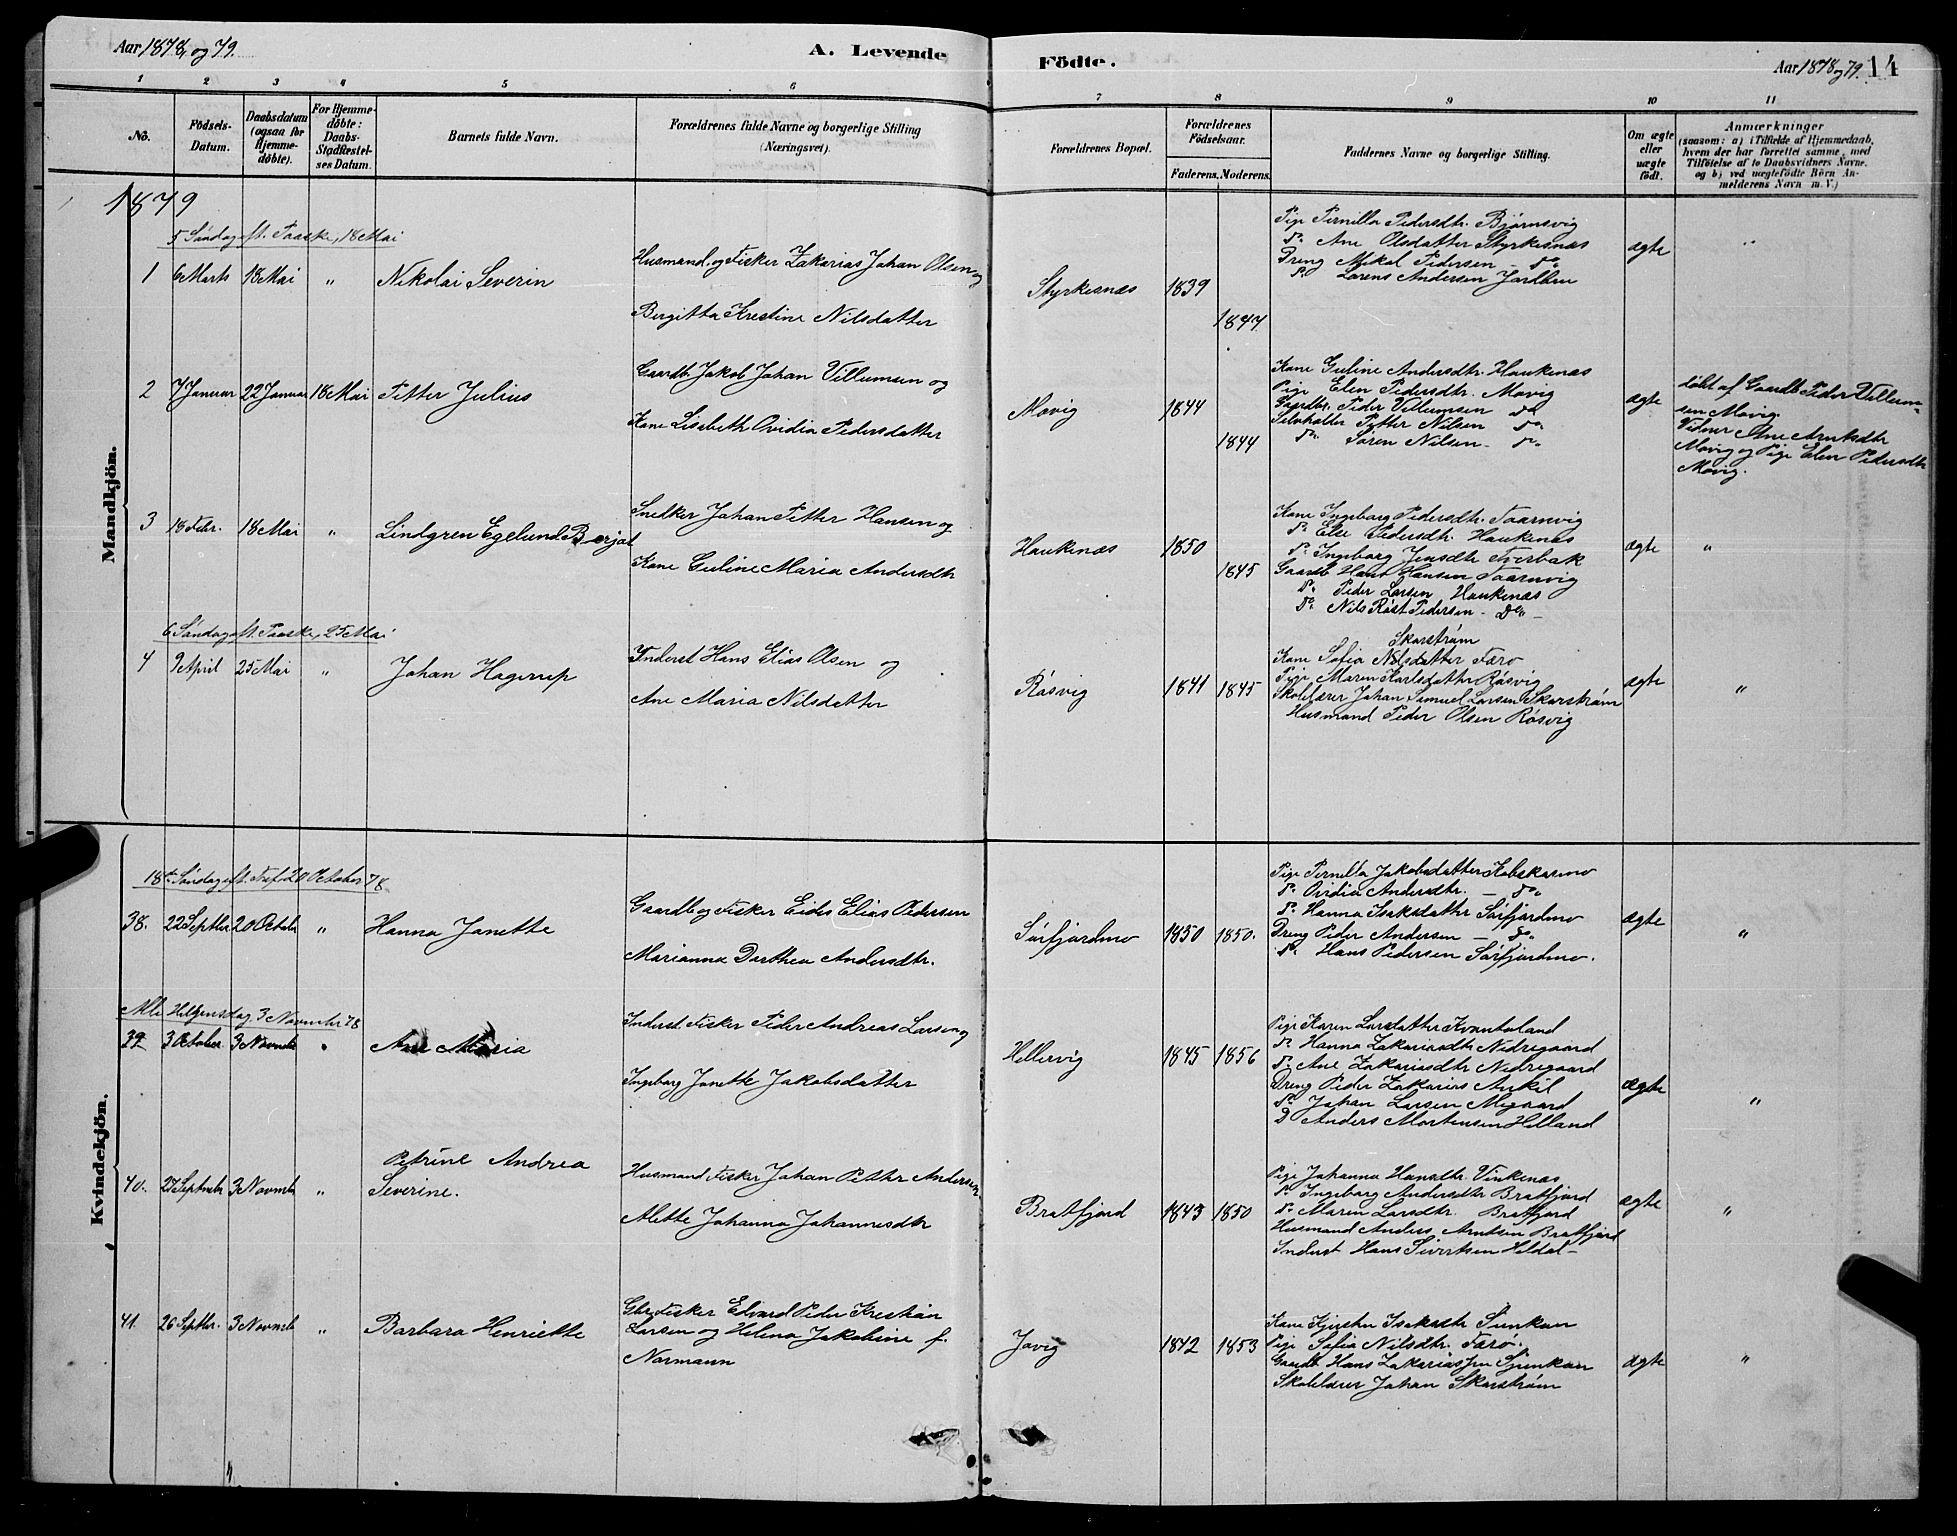 Aar 1878 og 79.
A. Levende
Födte.
Aar 1878 og 79. 14
1 2 3 4 5 6 7 8 9 10 11
No.
Födsels-
Datum.
Daabsdatum
(ogsaa for
Hjemme-
döbte).
For Hjemme-
döbte:
Daabs-
Stadfæstel-
ses Datum.
Barnets fulde Navn.
Forældrenes fulde Navne og borgerlige Stilling
(Næringsvei).
Forældrenes Bopæl.
Forældrenes
Födselsaar.
Faderens. Moderens.
Faddernes Navne og borgerlige Stilling.
Om ægte
eller
uægte
födt.
Anmærkninger
(saasom: a) i Tilfælde af Hjemmedaab,
hvem der har forrettet samme, med
Tilföielse af to Daabsvidners Navne,
og b) ved uægtefödte Börn An-
melderens Navn m. V.)
Mandkjön.
1879
5 Søndag eft. Paaske, 18 Mai
1 6 Marts 18 Mai " Nikolai Severin
Husmand og Fisker Zakarias Johan Olsen og
Bergitta Krestine Nilsdatter
Styrkesnæs 1839
1847
Pige Pernilla Pedersdtr. Bjørnsvig
do Ane Olsdatter Styrkesnæs
Dreng Mikal Pedersen - do
do Lorens Andersen Jordbru
ægte "
2 7 Januar 22 Januar 18 Mai Petter Julius
Gaardb. Jakob Johan Villumsen og
Kone Lisabeth Ovidia Pedersdatter
Movig 1844
1844
Kone Guline Andersdtr. Haukenæs
Pige Elen Pedersdtr. Movig
Gaardbr. Peder Villumsen do
Selvholder Petter Nilsen do
do Søren Nilsen - do
ægte
døbt af Gaardb. Peder Villum-
sen Movig.
Vidner Ane Arntsdtr
Movig og Pige Elen Pedersdtr
Movig.
3 18 Febr. 18 Mai " Lindgren Egelund Berjat
Snedker Johan Petter Hansen og
Kone Guline Maria Andersdtr
Haukenæs 1850
1845
Kone Ingebarg Pedersdtr. Taarnvig
do Else Pedersdtr. Haukenæs
do Ingebarg Jensdtr Tverbak
Gaardb. Hans Hansen Taarnvig
do Peder Larsen Haukenæs
do Nils Røst Pedersen - do -
ægte "
6 Søndag eft. Paaske, 25 Mai
4 9 April 25 Mai " Johan Hagerup
Inderst Hans Elias Olsen og
Ane Maria Nilsdatter
Røsvig 1841 1845
Skarstrøm
Kone Sofia Nilsdatter Færø
Pige Maren Karlsdatter Røsvig
Skolelærer Johan Samuel Larsen Skarstrøm
Husmand Peder Olsen Røsvig
ægte "
Kvindekjön.
18de Søndag eft. Tref. 20 October 78
38. 22 Septbr 20 Octob " Hanna Janette
Gaardb og Fisker Eides Elias Pedersen
Marianna Dorthea Andersdtr.
Sørfjordmo 1850 1850.
Pige Pernilla Jakobsdatter Kobskarmo
do Ovidia Andersdtr. - do
do Hanna Isaksdatter Sørfjordmo
Dreng Peder Andersen - do
do Hans Pedersen Sørfjordmo.
ægte "
Alle Helgensdag 3 November 78
39 3 October 3 Novmb " Ane Maria
Inderst Fisker Peder Andreas Larsen og
Ingeborg Janette Jakobsdatter
Hellervig 1845 1856
Pige Karen Larsdatter Kvantoland
do Hanna Zakariasdtr Nedregaard
do Ane Zakariasdtr Nedregaard
Dreng Peder Zakarias Ankil
do Johan Larsen Megaard
D Anders Mortensen Helland
ægte "
40. 27 Septmbr 3 Novmb " Petrine Andrea
Severine.
Husmand Fisker Johan Petter Andersen
Alette Johanna Johannesdtr
Bratfjord 1843 1850
Pige Johanna Hansdtr. Vinkenæs
do Ingebarg Andersdtr Bratfjord
do Maren Larsdtr. Bratfjord
Husmand Anders Arntsen Bratfjord
Inderst Hans Sivertsen Heldal -
ægte "
41. 26 Septbr. 3 Novmb " Barbara Henriette
Gbr. Fisker Edvard Peder Krestian
Larsen og Helena Jakobine f.
Normann
Jovig 1842 1853
Kone Kjersten Isaksdtr Sunkan
Pige Sofia Nilsdtr. Færø.
Gaardb. Hans Zakarias Jon Sjunkan
Skolelærer Johan Skarstrøm
ægte "